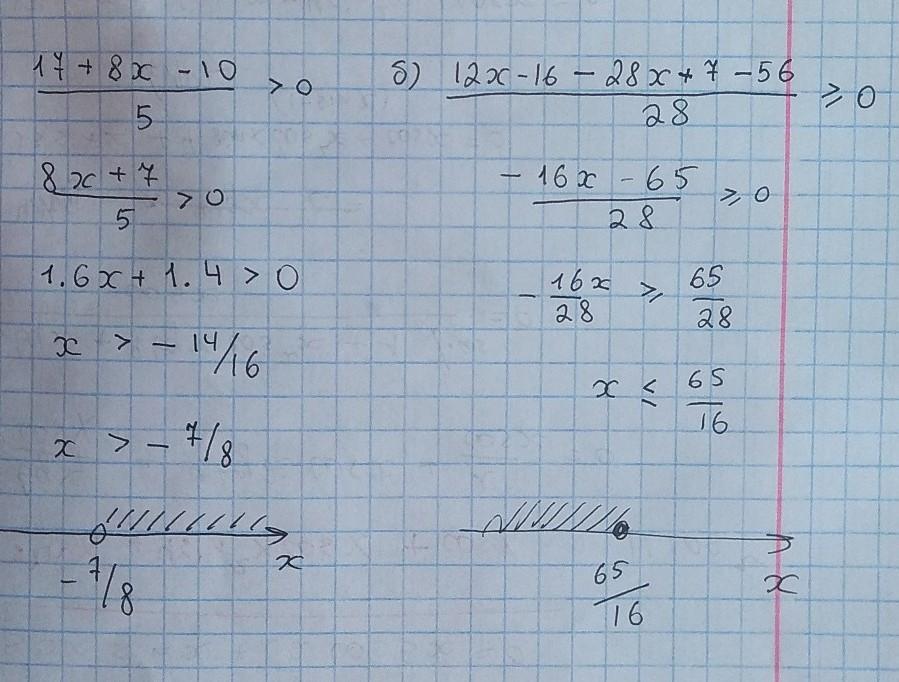 17 + 8x - 10 / 5 > 0
8x + 7 / 5 > 0
1.6x + 1.4 > 0
x > - 14/16
x > - 7/8
- 7/8
x
б) 12x - 16 - 28x + 7 - 56 / 28 ≥ 0
- 16x - 65 / 28 ≥ 0
- 16x/28 ≥ 65/28
x ≤ 65/16
65/16
x